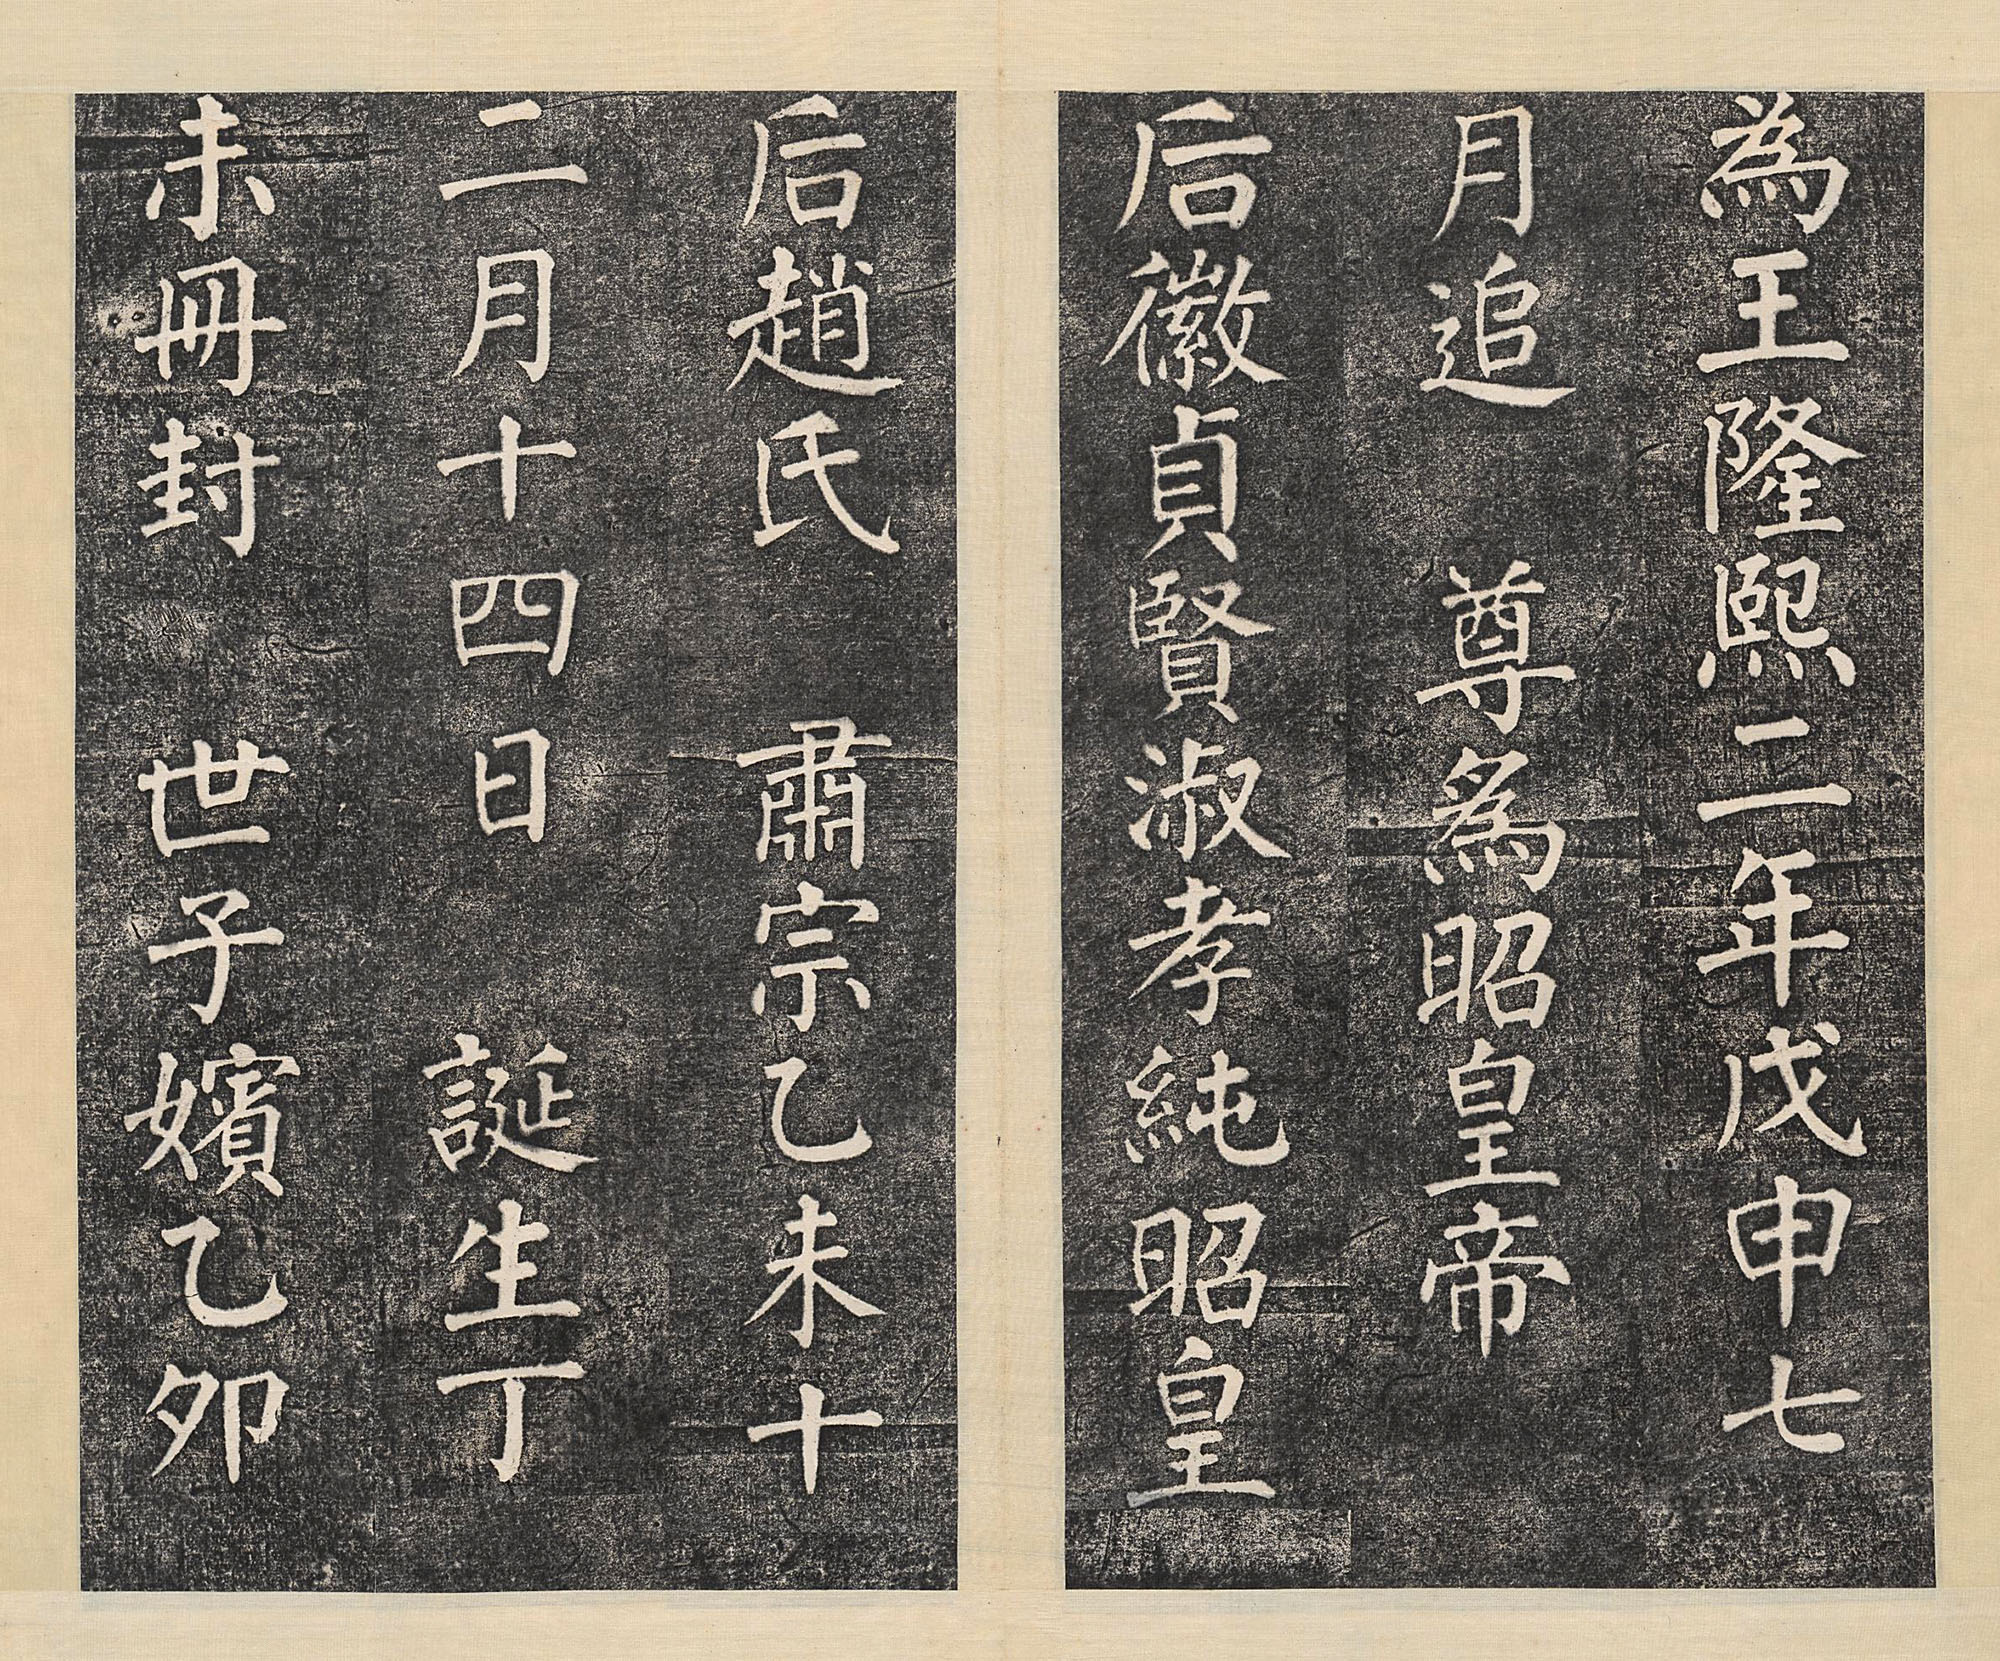 為王隆熙二年戊申七
月追 尊爲昭皇帝
后徽貞賢淑孝純昭皇
后趙氏 肅宗乙未十
二月十四日 誕生丁
未冊封 世子嬪乙卯